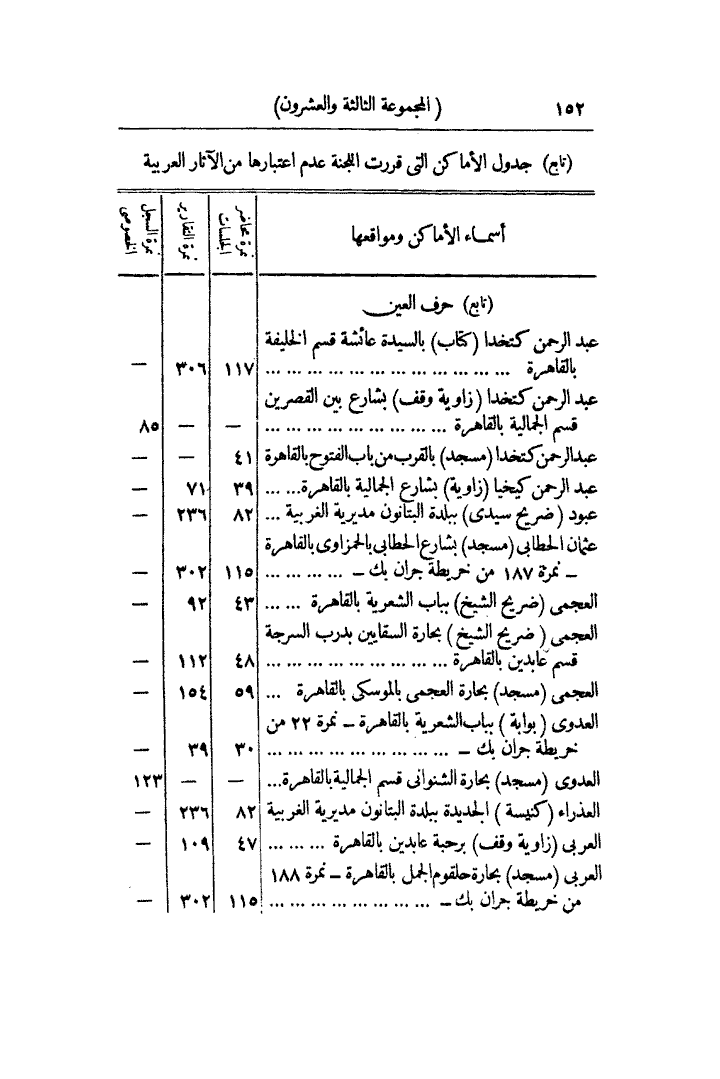 ١٥٢ (المجموعة الثالثة والعشرون)
(تابع) جدول الأماكن التى قررت اللجنة عدم اعتبارها من الآثار العربية
أسماء الأماكن ومواقعها | نمرة محاضر الجلسات | نمرة التقارير | نمرة السجل الخصوصى
(تابع) حرف العين
عبد الرحمن كتخدا (كتاب) بالسيدة عائشة قسم الخليفة
بالقاهرة ... ... ... ... ... ... ... ... ... ... ... ١١٧ ٣٠٦ —
عبد الرحمن كتخدا (زاوية وقف) بشارع بين القصرين
قسم الجمالية بالقاهرة ... ... ... ... ... ... ... ... — — ٨٥
عبد الرحمن كتخدا (مسجد) بالقرب من باب الفتوح بالقاهرة ٤١ — —
عبد الرحمن كيخيا (زاوية) بشارع الجمالية بالقاهرة... ... ٣٩ ٧١ —
عبود (ضريح سيدى) ببلدة البتانون مديرية الغربية ... ٨٢ ٢٣٦ —
عثمان الحطابى (مسجد) بشارع الحطابى بالحمزاوى بالقاهرة
ـ نمرة ١٨٧ من خريطة جران بك ـ ... ... ... ... ١١٥ ٣٠٢ —
العجمى (ضريح الشيخ) بباب الشعرية بالقاهرة ... ... ٤٣ ٩٢ —
العجمى (ضريح الشيخ) بحارة السقايين بدرب السرجة
قسم عابدين بالقاهرة ... ... ... ... ... ... ... ... ٤٨ ١١٢ —
العجمى (مسجد) بحارة العجمى بالموسكى بالقاهرة ... ٥٩ ١٥٤ —
العدوى (بوابة) بباب الشعرية بالقاهرة ـ نمرة ٢٢ من
خريطة جران بك ـ ... ... ... ... ... ... ... ... ٣٠ ٣٩ —
العدوى (مسجد) بحارة الشنوانى قسم الجمالية بالقاهرة... — — ١٢٣
العذراء (كنيسة) الجديدة ببلدة البتانون مديرية الغربية ٨٢ ٢٣٦ —
العربى (زاوية وقف) برحبة عابدين بالقاهرة ... ... ... ٤٧ ١٠٩ —
العربى (مسجد) بحارة حلقوم الجمل بالقاهرة ـ نمرة ١٨٨
من خريطة جران بك ـ ... ... ... ... ... ... ... ... ١١٥ ٣٠٢ —